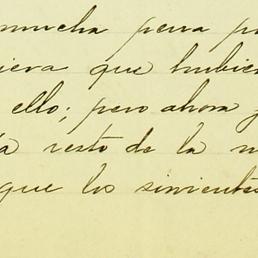 mucha pena p
iera que hubie
ello; pero ahora y
a resto de la n
que los sirvientes